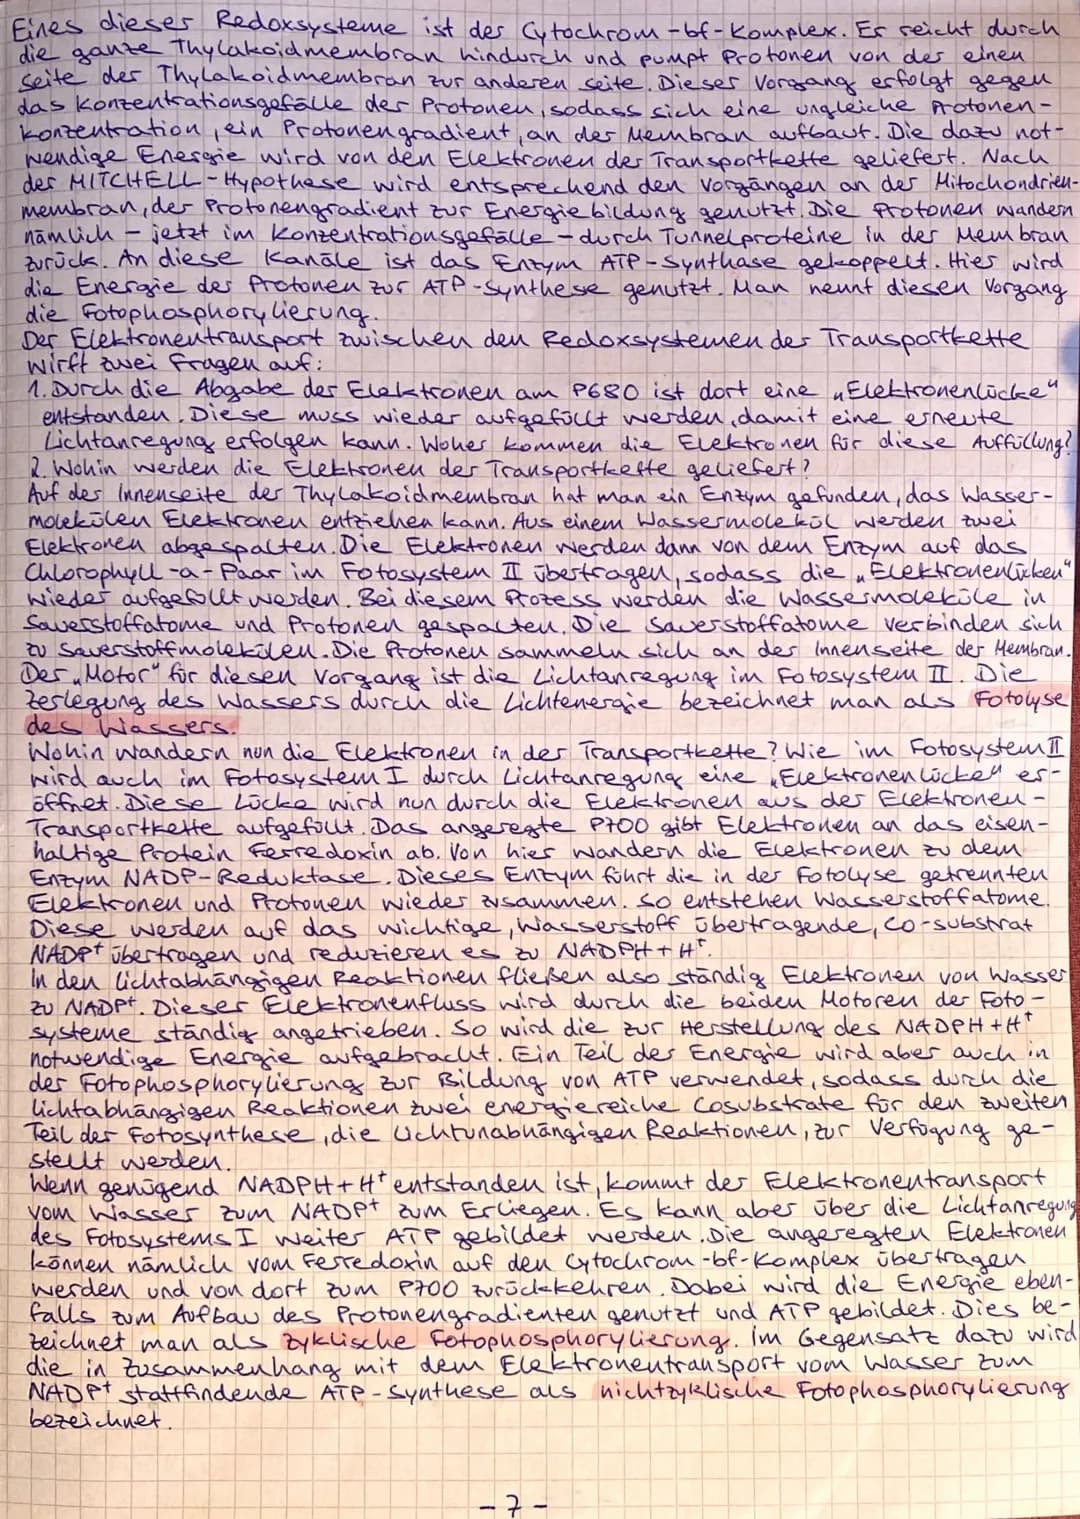 Eines dieser Redoxsysteme ist der Cytochrom-bf-Komplex. Er reicht durch
die ganze Thylakoidmembran hindurch und pumpt Protonen von der einen
Seite der Thylakoidmembran zur anderen Seite. Dieser Vorgang erfolgt gegen
das Konzentrationsgefälle der Protonen, sodass sich eine ungleiche Protonen-
konzentration, ein Protonengradient, an der Membran aufbaut. Die dazu not-
wendige Energie wird von den Elektronen der Transportkette geliefert. Nach
der MITCHELL-Hypothese wird entsprechend den Vorgängen an der Mitochondrien-
membran, der Protonengradient zur Energiebildung genutzt. Die Protonen wandern
nämlich - jetzt im Konzentrationsgefälle - durch Tunnelproteine in der Membran
zurück. An diese Kanäle ist das Enzym ATP-Synthase gekoppelt. Hier wird
die Energie der Protonen zur ATP-Synthese genutzt. Man nennt diesen Vorgang
die Fotophosphorylierung.
Der Elektronentransport zwischen den Redoxsystemen der Transportkette
wirft zwei Fragen auf:
1. Durch die Abgabe der Elektronen am P680 ist dort eine „Elektronenlücke"
entstanden. Diese muss wieder aufgefüllt werden, damit eine erneute
Lichtanregung erfolgen kann. Woher kommen die Elektronen für diese Auffüllung?
2. Wohin werden die Elektronen der Transportkette geliefert?
Auf der Innenseite der Thylakoidmembran hat man ein Enzym gefunden, das Wasser-
molekülen Elektronen entziehen kann. Aus einem Wassermolekül werden zwei
Elektronen abgespalten. Die Elektronen werden dann von dem Enzym auf das
Chlorophyll-a-Paar im Fotosystem II übertragen, sodass die „Elektronenlücken"
wieder aufgefüllt werden. Bei diesem Prozess werden die Wassermoleküle in
Sauerstoffatome und Protonen gespalten. Die Sauerstoffatome verbinden sich
zu Sauerstoffmolekülen. Die Protonen sammeln sich an der Innenseite der Membran.
Der „Motor" für diesen Vorgang ist die Lichtanregung im Fotosystem II. Die
Zerlegung des Wassers durch die Lichtenergie bezeichnet man als Fotolyse
des Wassers.
Wohin wandern nun die Elektronen in der Transportkette? Wie im Fotosystem II
wird auch im Fotosystem I durch Lichtanregung eine „Elektronenlücke" er-
öffnet. Diese Lücke wird nun durch die Elektronen aus der Elektronen-
Transportkette aufgefüllt. Das angeregte P700 gibt Elektronen an das eisen-
haltige Protein Ferredoxin ab. Von hier wandern die Elektronen zu dem
Enzym NADP-Reduktase. Dieses Enzym führt die in der Fotolyse getrennten
Elektronen und Protonen wieder zusammen. So entstehen Wasserstoffatome.
Diese werden auf das wichtige, Wasserstoff übertragende, Co-substrat
NADP⁺ übertragen und reduzieren es zu NADPH+H⁺.
In den lichtabhängigen Reaktionen fließen also ständig Elektronen von Wasser
zu NADP⁺. Dieser Elektronenfluss wird durch die beiden Motoren der Foto-
systeme ständig angetrieben. So wird die zur Herstellung des NADPH+H⁺
notwendige Energie aufgebracht. Ein Teil der Energie wird aber auch in
der Fotophosphorylierung zur Bildung von ATP verwendet, sodass durch die
lichtabhängigen Reaktionen zwei energiereiche Cosubstrate für den zweiten
Teil der Fotosynthese, die lichtunabhängigen Reaktionen, zur Verfügung ge-
stellt werden.
Wenn genügend NADPH+H⁺ entstanden ist, kommt der Elektronentransport
vom Wasser zum NADP⁺ zum Erliegen. Es kann aber über die Lichtanregung
des Fotosystems I weiter ATP gebildet werden. Die angeregten Elektronen
können nämlich vom Ferredoxin auf den Cytochrom-bf-Komplex übertragen
werden und von dort zum P700 zurückkehren. Dabei wird die Energie eben-
falls zum Aufbau des Protonengradienten genutzt und ATP gebildet. Dies be-
zeichnet man als zyklische Fotophosphorylierung. Im Gegensatz dazu wird
die in Zusammenhang mit dem Elektronentransport vom Wasser zum
NADP⁺ stattfindende ATP-Synthese als nichtzyklische Fotophosphorylierung
bezeichnet.
- 7 -